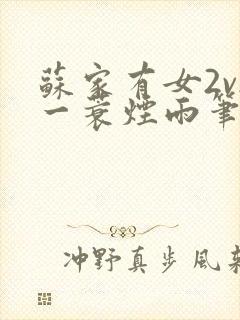 蘇家有女2v
一蓑煙雨筆
冲野真步風架